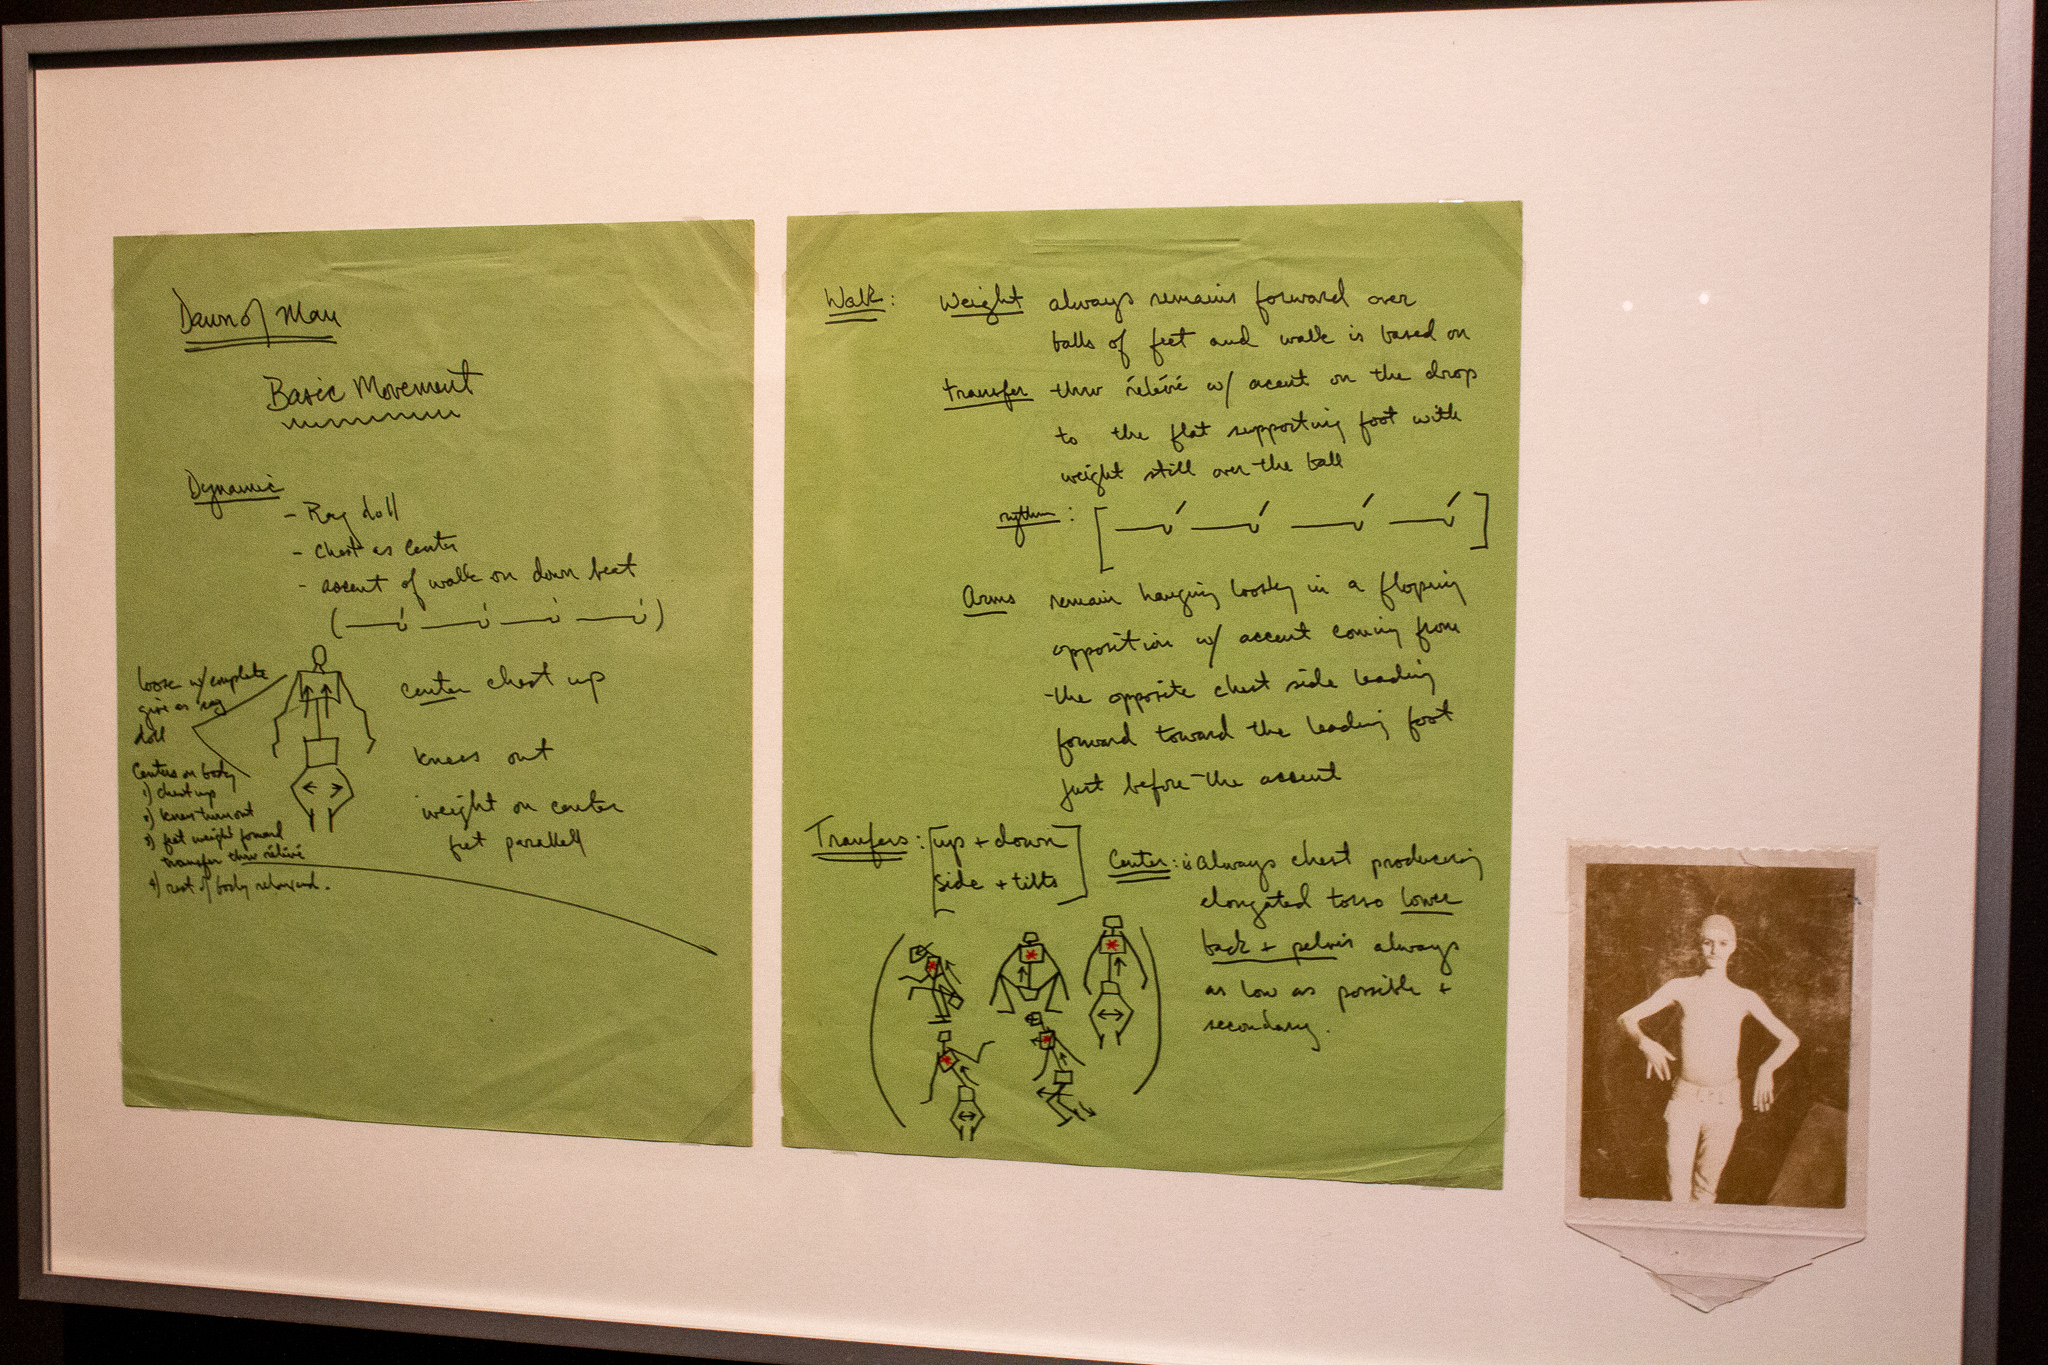 Dawn of Man
Basic Movement
Dynamic
- Rag doll
- Chest as Center
- accent of walk on down beat
loose w/ complete
give as rag
doll
Centers on body
1) chest up
2) knees turnout
3) feet weight forward
transfer thru rélévé
4) rest of body relaxed.
center chest up
knees out
weight on center
feet parallell
Walk: Weight always remains forward over
balls of feet and walk is based on
transfer thru rélévé w/ accent on the drop
to the flat supporting foot with
weight still over the ball
rythm:
Arms remain hanging loosley in a floping
opposition w/ accent coming from
the opposite chest side leading
forward toward the leading foot
just before the accent
Tranfers: [up + down
side + tilts]
Center: is always chest producing
elongated torso lower
back + pelvis always
as low as possible +
secondary.